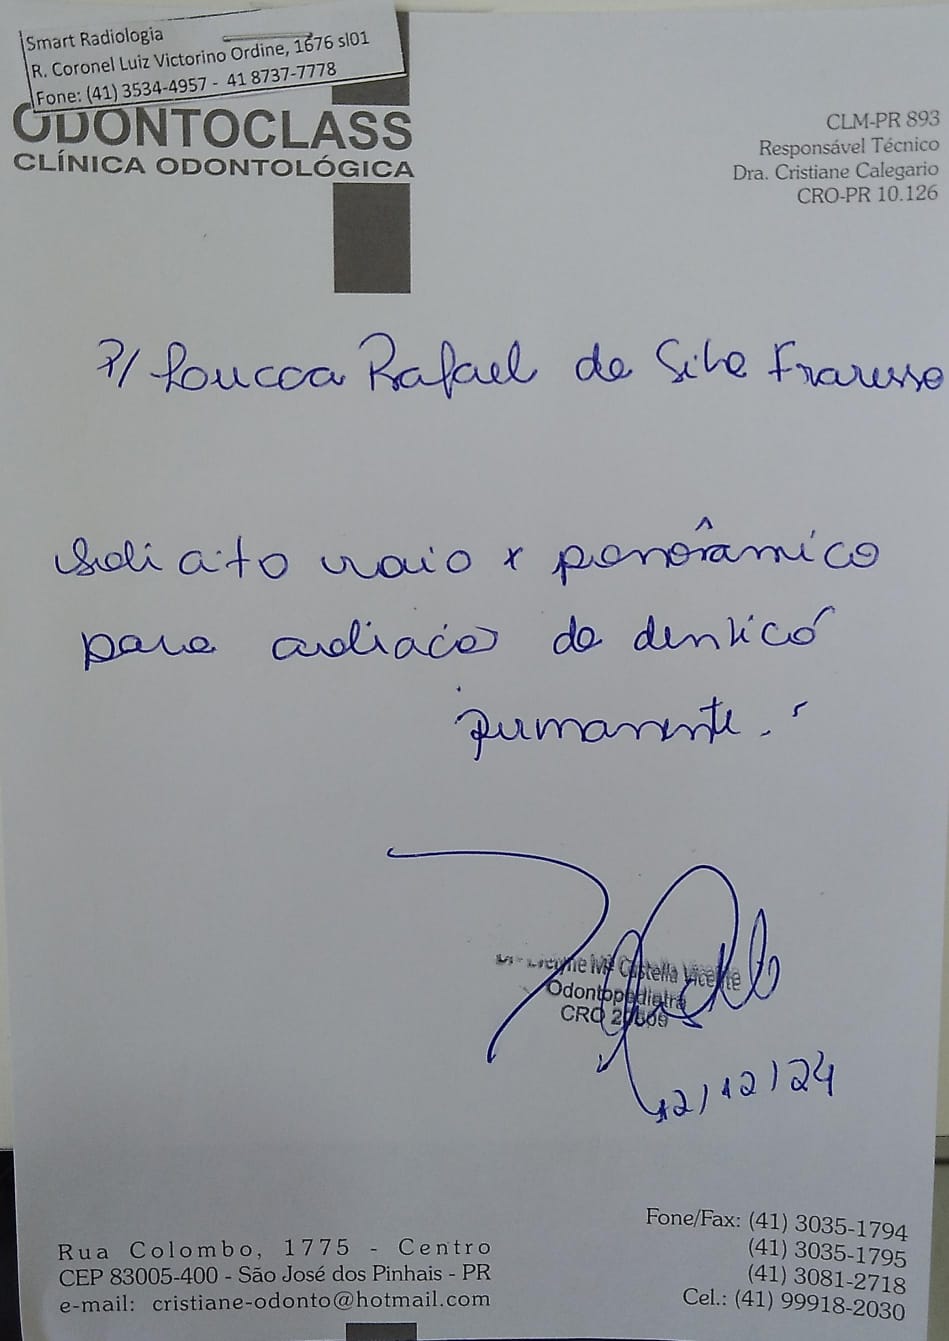 Smart Radiologia
R. Coronel Luiz Victorino Ordine, 1676 sl01
Fone: (41) 3534-4957 - 41 8737-7778
ODONTOCLASS
CLÍNICA ODONTOLÓGICA
CLM-PR 893
Responsável Técnico
Dra. Cristiane Calegario
CRO-PR 10.126
P/ Rafael da Silva
Solicito raio x panorâmico
para avaliação da dentição
permanente.
Mª Castella Vicente
Odontopediatra
CRO
12/12/24
Rua Colombo, 1775 - Centro
CEP 83005-400 - São José dos Pinhais - PR
e-mail: cristiane-odonto@hotmail.com
Fone/Fax: (41) 3035-1794
(41) 3035-1795
(41) 3081-2718
Cel.: (41) 99918-2030